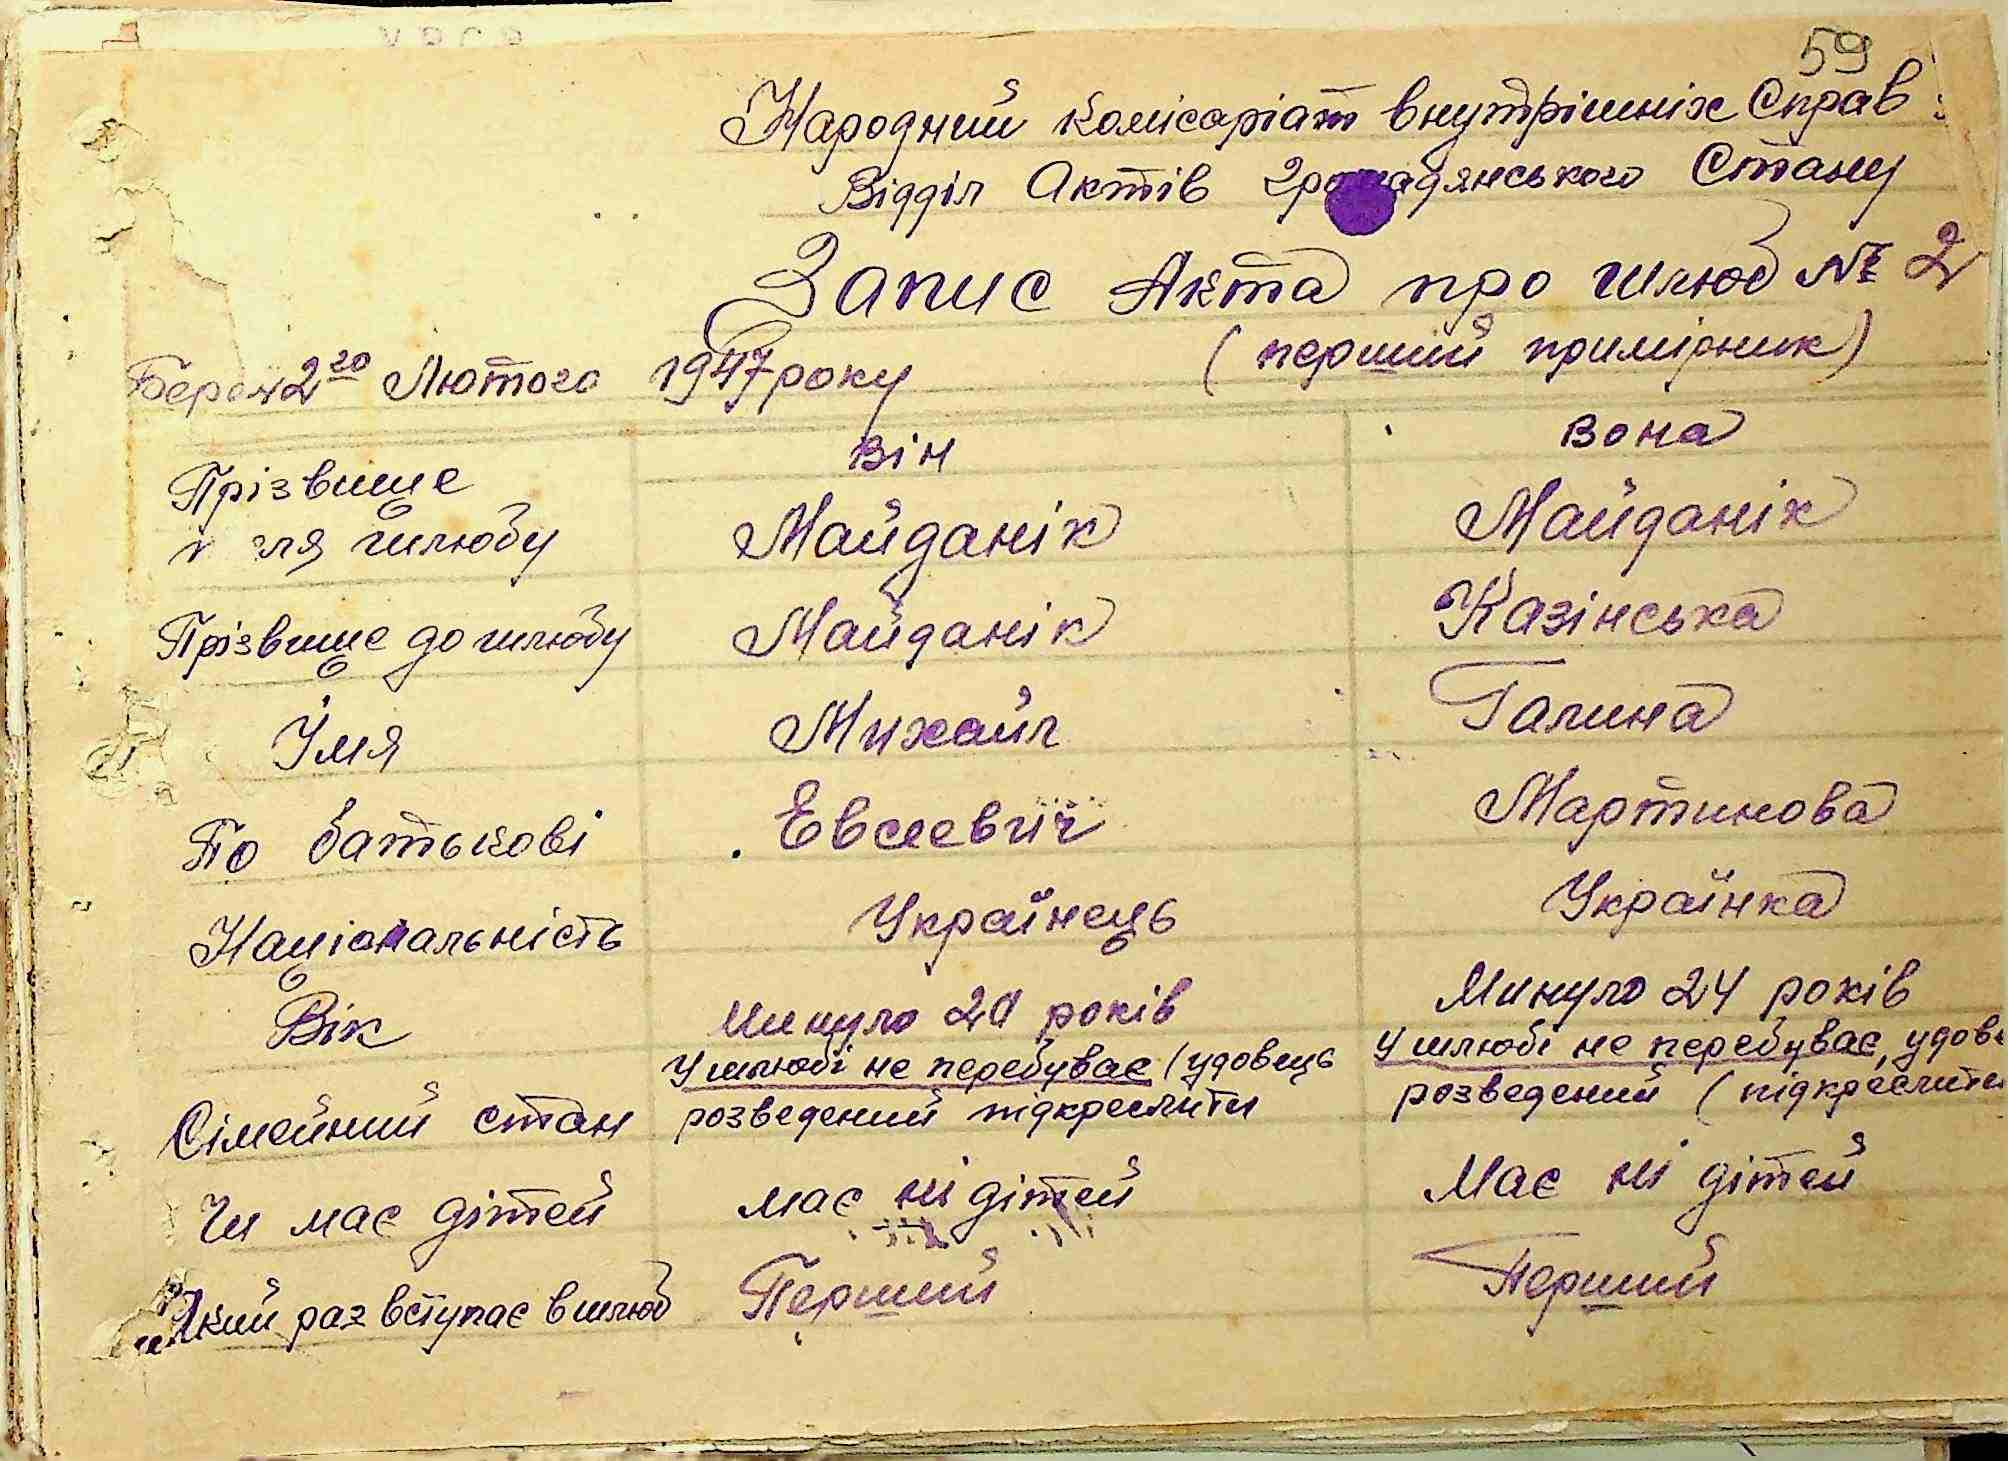 59
Народний комісаріат внутрішніх Справ
Відділ Актів громадянського Стану
Запис Акта про шлюб № 2
(перший примірник)
2го Лютого 1947 року
він вона
Прізвище
шлюбу Майданік Майданік
Прізвище до шлюбу Майданік Казінська
Імя Михайл Галина
По батькові Евсеевич Мартинова
Національність Українець Українка
Вік Минуло років Минуло 24 років
у шлюбі не перебуває (удовець у шлюбі не перебуває, удове
Сімейний стан розведений підкреслити розведений (підкреслити
Чи має дітей має ні дітей Має ні дітей
Який раз вступає в шлюб Перший Перший